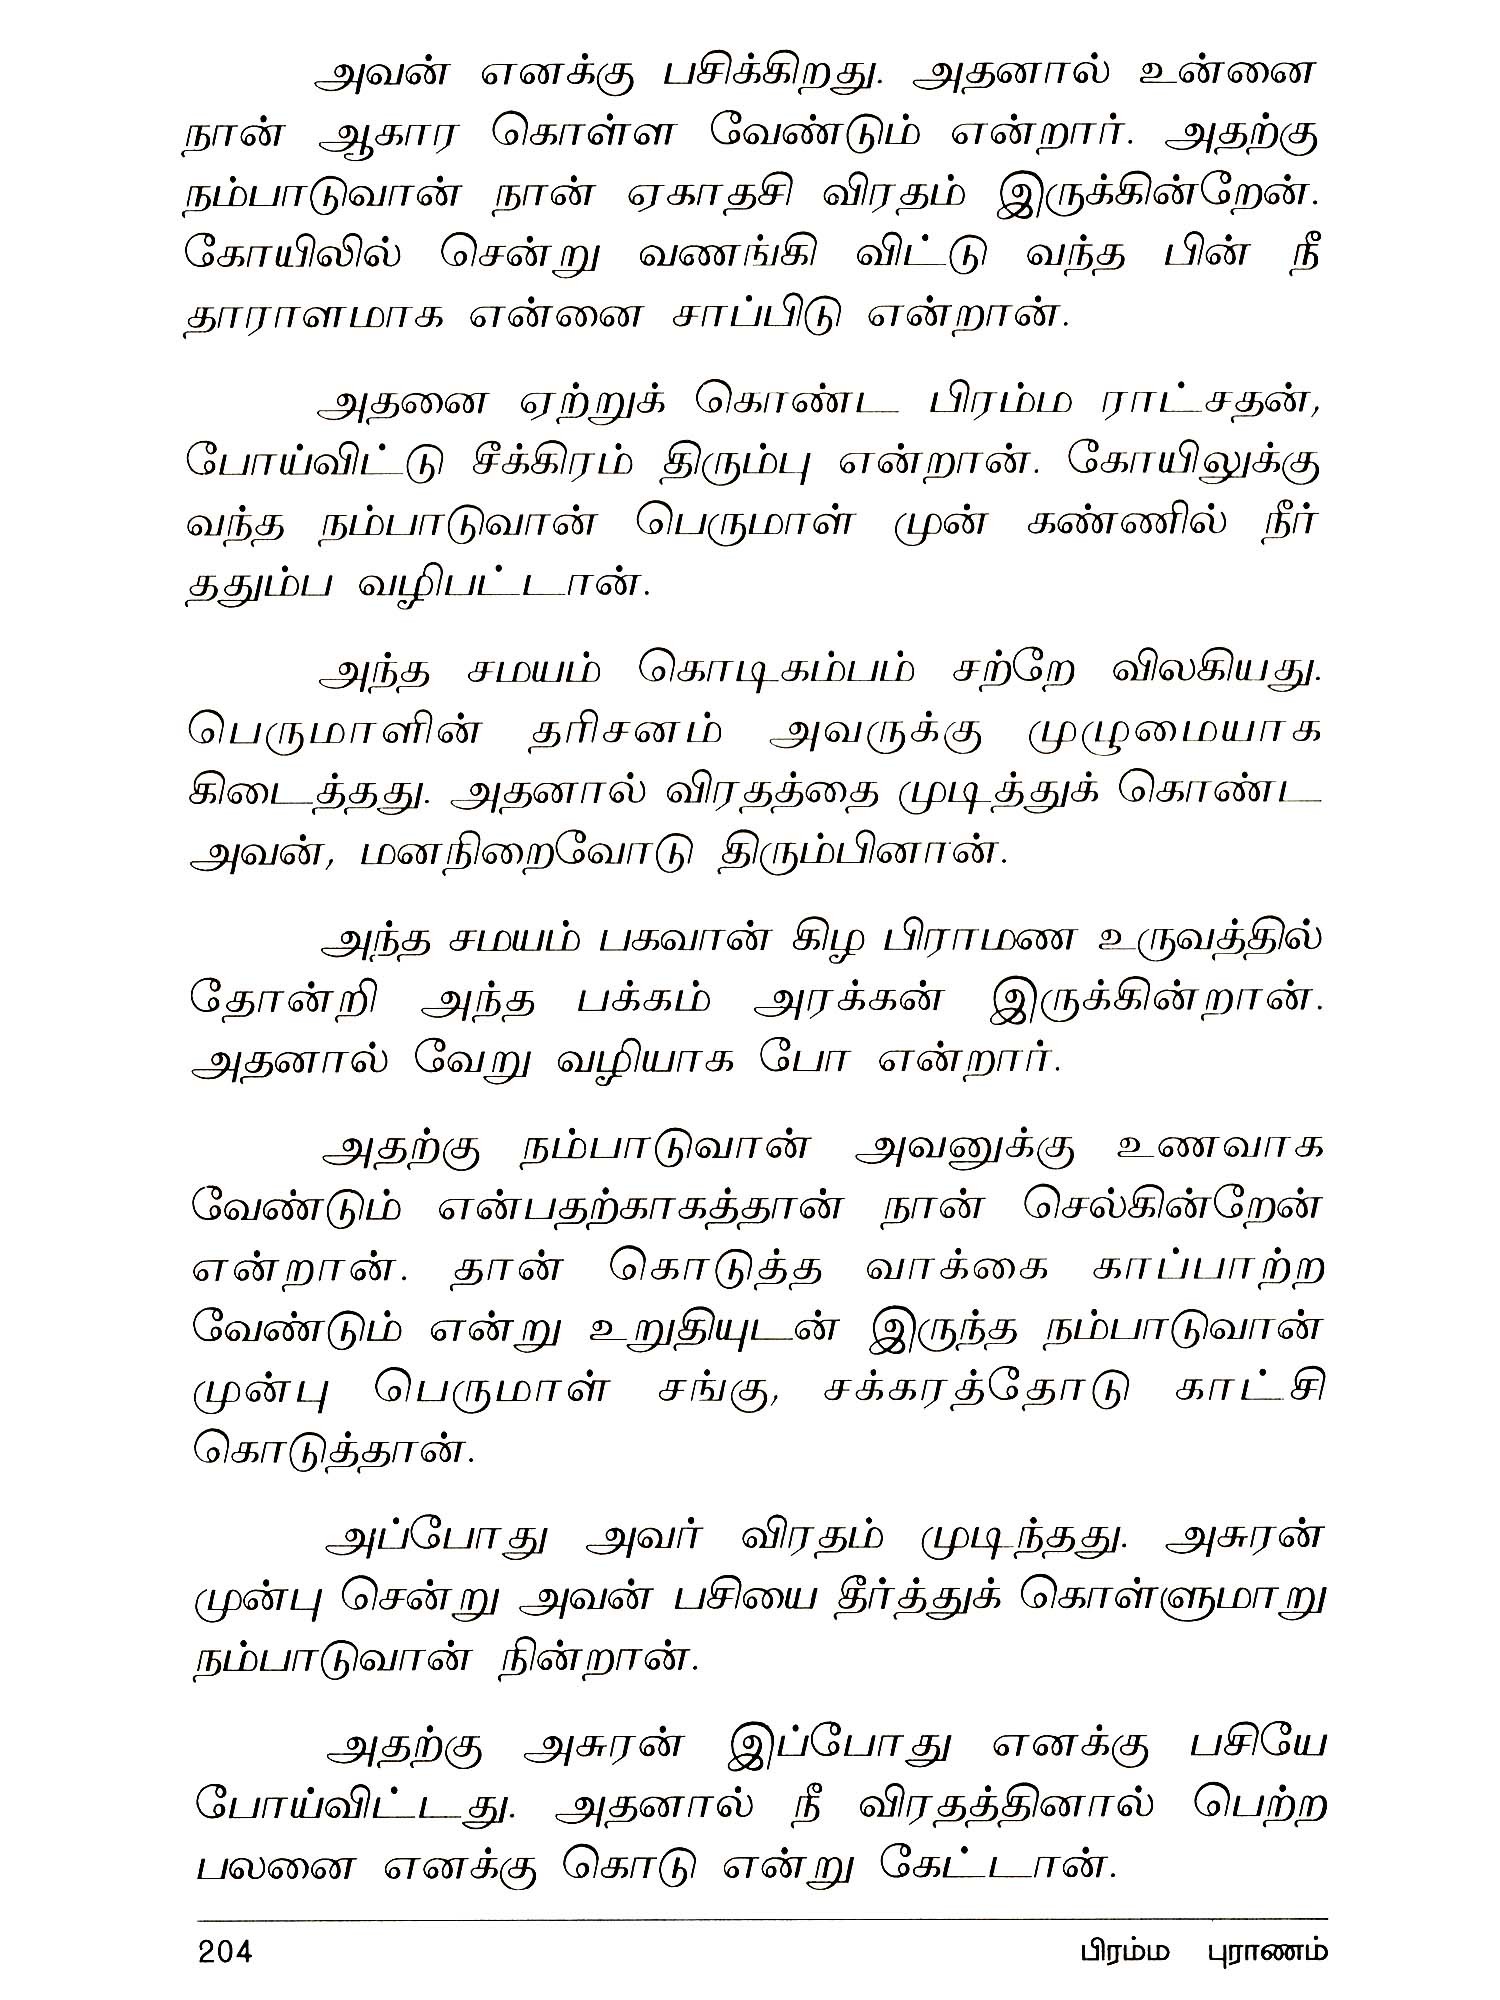 அவன் எனக்கு பசிக்கிறது. அதனால் உன்னை
நான் ஆகார கொள்ள வேண்டும் என்றார். அதற்கு
நம்பாடுவான் நான் ஏகாதசி விரதம் இருக்கின்றேன்.
கோயிலில் சென்று வணங்கி விட்டு வந்த பின் நீ
தாராளமாக என்னை சாப்பிடு என்றான்.
அதனை ஏற்றுக் கொண்ட பிரம்ம ராட்சதன்,
போய்விட்டு சீக்கிரம் திரும்பு என்றான். கோயிலுக்கு
வந்த நம்பாடுவான் பெருமாள் முன் கண்ணில் நீர்
ததும்ப வழிபட்டான்.
அந்த சமயம் கொடிகம்பம் சற்றே விலகியது.
பெருமாளின் தரிசனம் அவருக்கு முழுமையாக
கிடைத்தது. அதனால் விரதத்தை முடித்துக் கொண்ட
அவன், மனநிறைவோடு திரும்பினான்.
அந்த சமயம் பகவான் கிழ பிராமண உருவத்தில்
தோன்றி அந்த பக்கம் அரக்கன் இருக்கின்றான்.
அதனால் வேறு வழியாக போ என்றார்.
அதற்கு நம்பாடுவான் அவனுக்கு உணவாக
வேண்டும் என்பதற்காகத்தான் நான் செல்கின்றேன்
என்றான். தான் கொடுத்த வாக்கை காப்பாற்ற
வேண்டும் என்று உறுதியுடன் இருந்த நம்பாடுவான்
முன்பு பெருமாள் சங்கு, சக்கரத்தோடு காட்சி
கொடுத்தான்.
அப்போது அவர் விரதம் முடிந்தது. அசுரன்
முன்பு சென்று அவன் பசியை தீர்த்துக் கொள்ளுமாறு
நம்பாடுவான் நின்றான்.
அதற்கு அசுரன் இப்போது எனக்கு பசியே
போய்விட்டது. அதனால் நீ விரதத்தினால் பெற்ற
பலனை எனக்கு கொடு என்று கேட்டான்.
204 பிரம்ம புராணம்